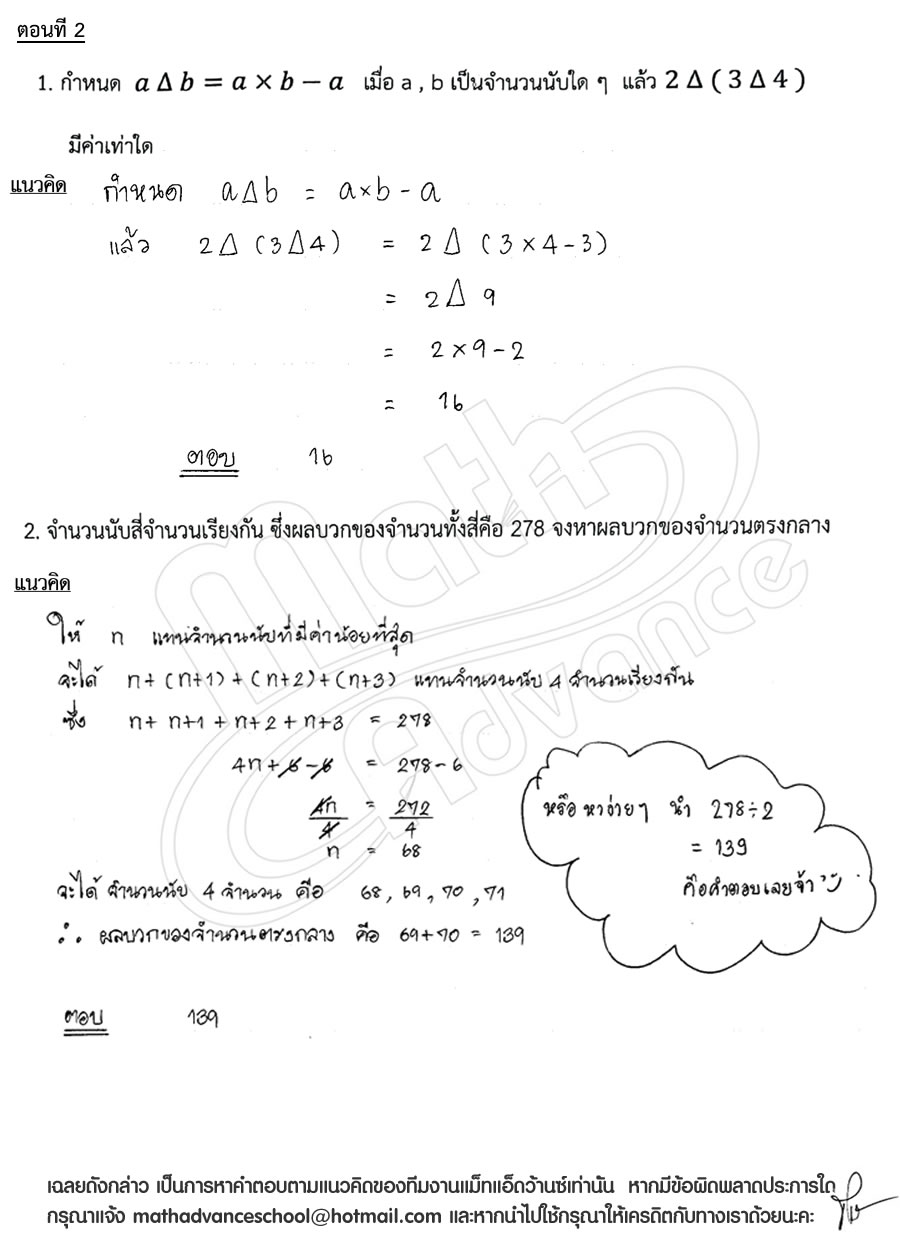 ตอนที่ 2
1. กำหนด a Δ b = a × b − a เมื่อ a , b เป็นจำนวนนับใด ๆ แล้ว 2 Δ ( 3 Δ 4 )
มีค่าเท่าใด
แนวคิด กำหนด aΔb = a×b - a
แล้ว 2Δ (3Δ4) = 2 Δ (3×4-3)
= 2Δ 9
= 2×9-2
= 16
ตอบ 16
2. จำนวนนับสี่จำนวนเรียงกัน ซึ่งผลบวกของจำนวนทั้งสี่คือ 278 จงหาผลบวกของจำนวนตรงกลาง
แนวคิด
ให้ n แทนจำนวนนับที่มีค่าน้อยที่สุด
จะได้ n+ (n+1) + (n+2) + (n+3) แทนจำนวนนับ 4 จำนวนเรียงกัน
ซึ่ง n+ n+1 + n+2 + n+3 = 278
4n+6-6 = 278-6
4n/4 = 272/4
n = 68
จะได้ จำนวนนับ 4 จำนวน คือ 68, 69, 70, 71
∴ ผลบวกของจำนวนตรงกลาง คือ 69+70 = 139
หรือ หาง่ายๆ นำ 278÷2
= 139
คือคำตอบเลยจ้า
ตอบ 139
Math Advance
เฉลยดังกล่าว เป็นการหาคำตอบตามแนวคิดของทีมงานแม็ทแอ็ดว้านซ์เท่านั้น หากมีข้อผิดพลาดประการใด
กรุณาแจ้ง mathadvanceschool@hotmail.com และหากนำไปใช้กรุณาให้เครดิตกับทางเราด้วยนะคะ